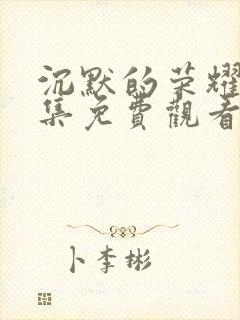 沉默的荣耀
集免費觀看
卜李彬